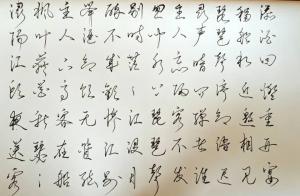 浔阳江头夜送客
枫叶荻花秋瑟々
主人下马客在船
举酒欲饮无管弦
醉不成欢惨将别
别时茫々江浸月
忽闻水上琵琶声
主人忘归客不发
寻声暗问弹者谁
琵琶声停欲语迟
移船相近邀相见
添酒回灯重开宴